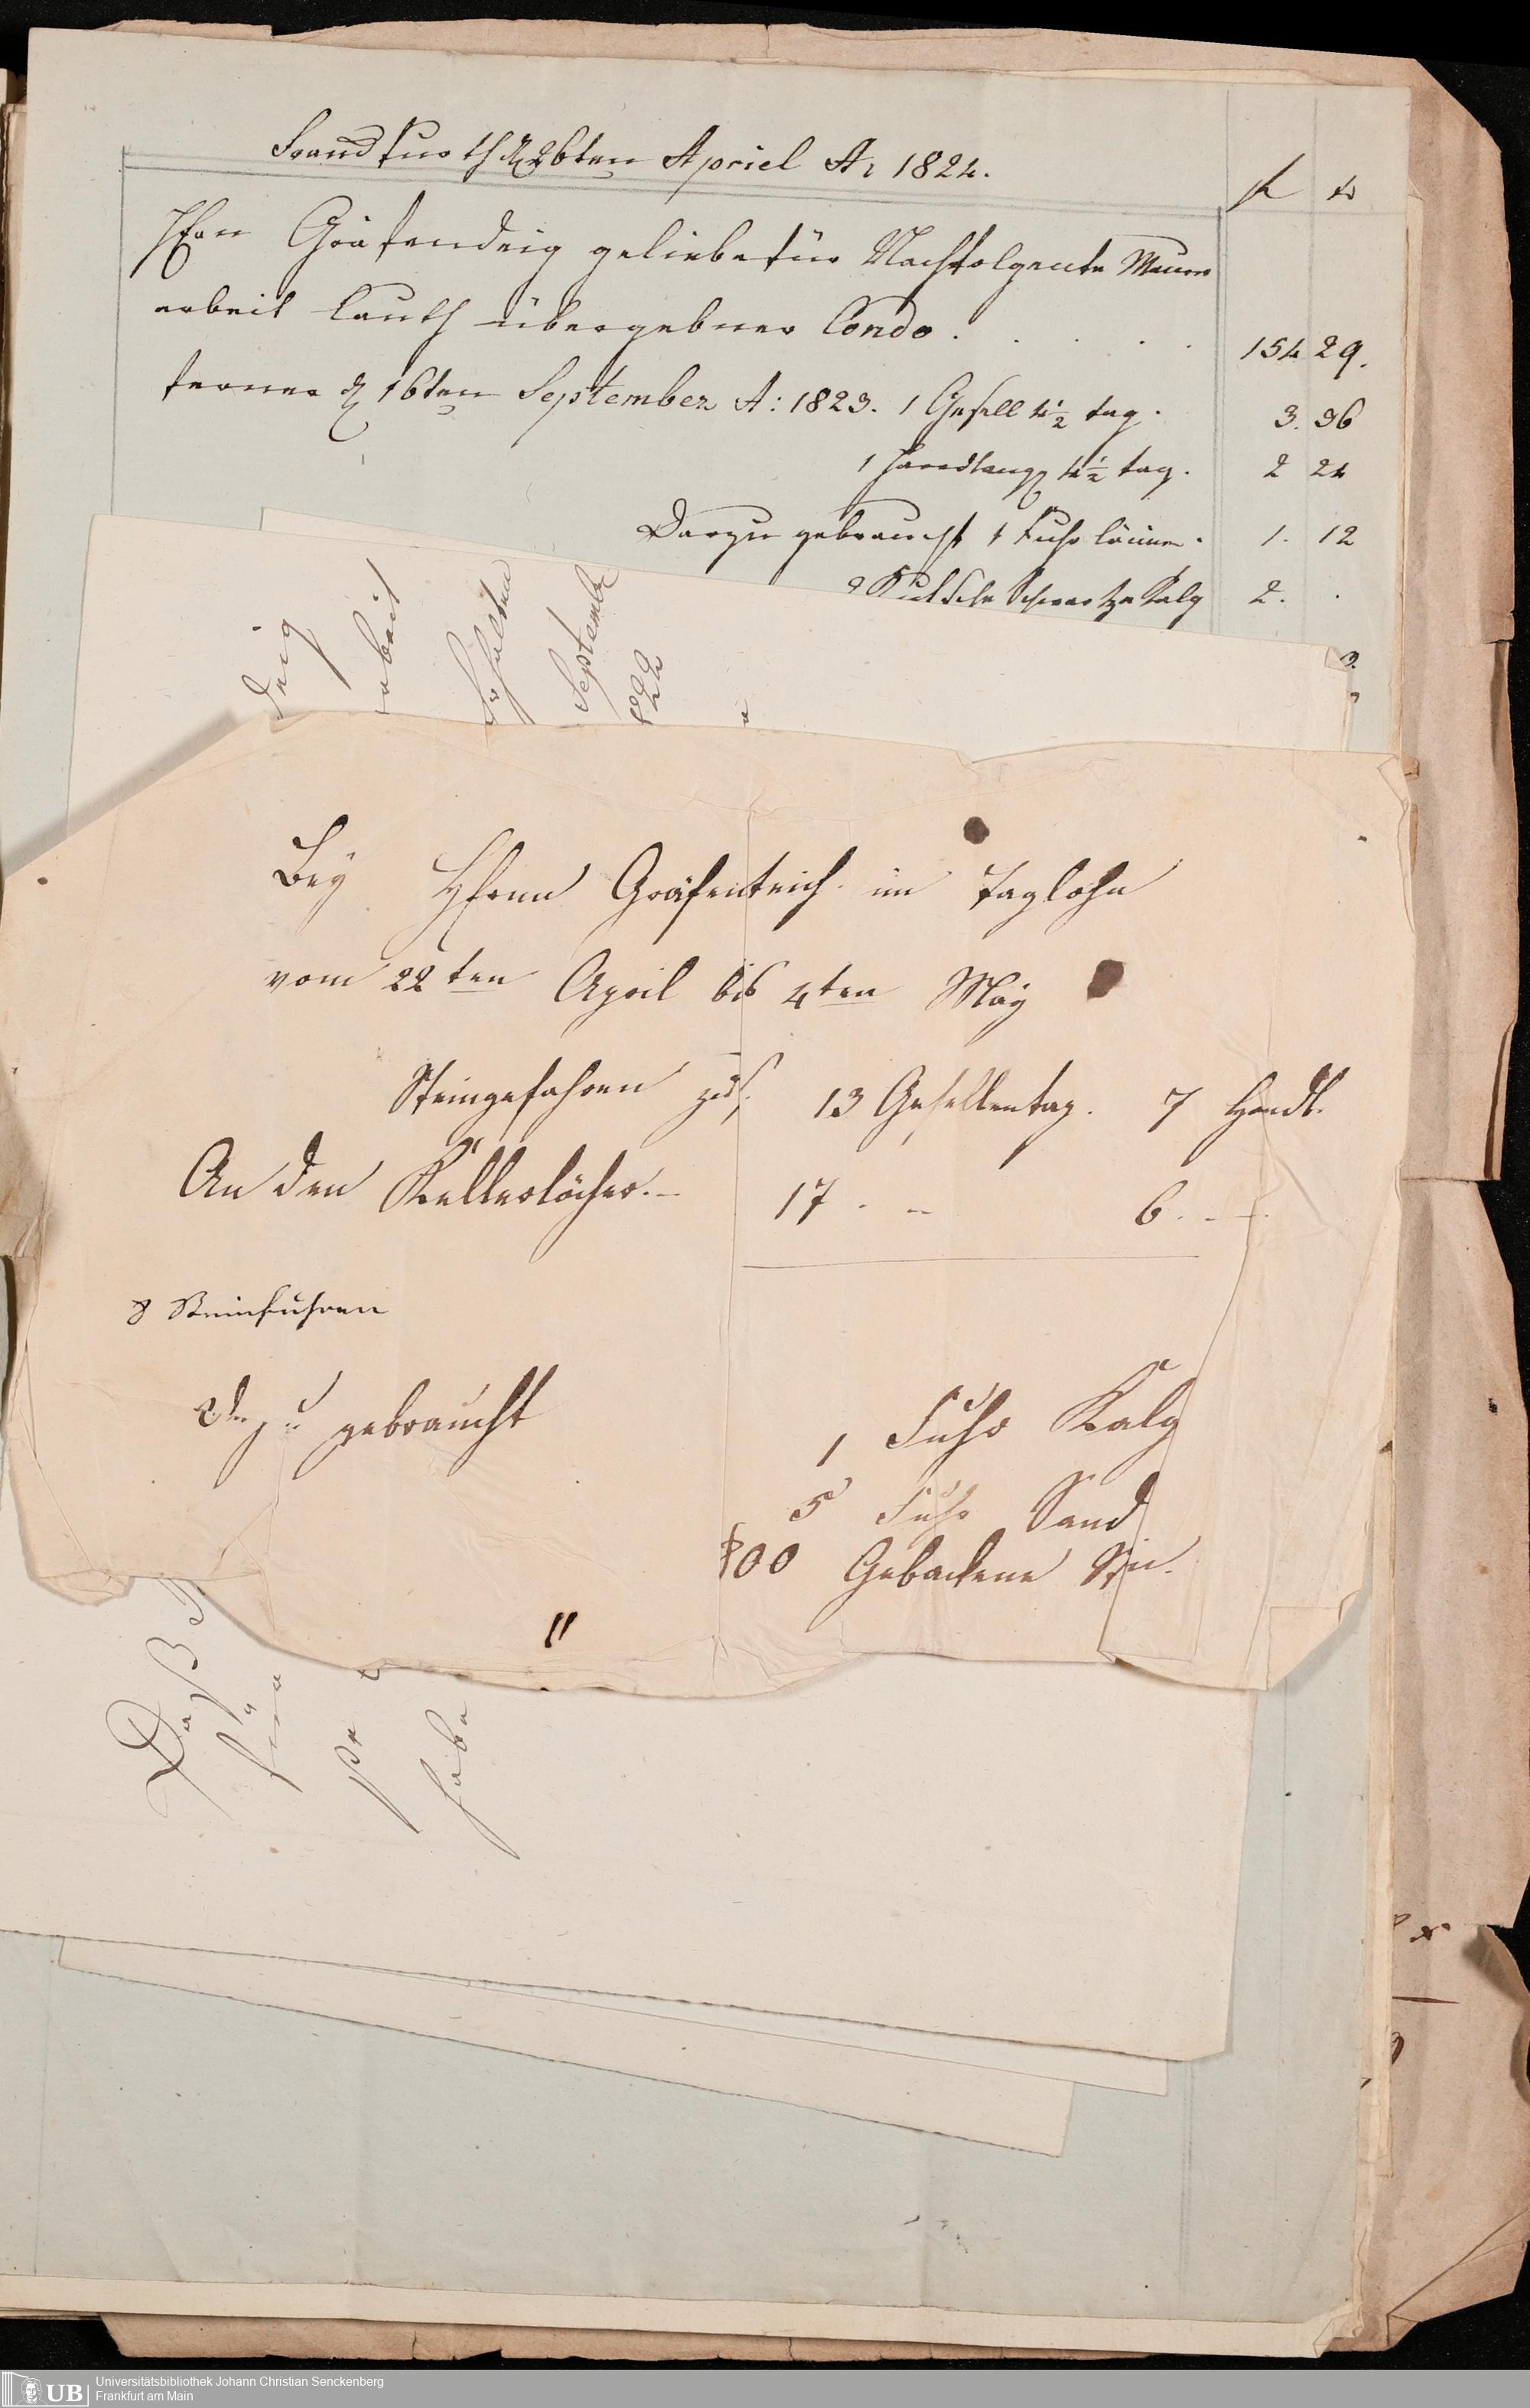 Franckfurth d 26ten Apriel A: 1824.
fl xr
Hern Gräfendeig geliebe für Nachfolgente Maurer
arbeit lauth übergebner Condo . . . . . 154 29.
ferner d 16ten September A: 1823. 1 Gesell 4½ tag. 3. 36
1 Handlang 4½ tag. 2 24
Darzu gebraucht 1 Fuhr 1. 12
Schwartze Kalg 2. .
deig
arbeit
Erhalten
September
Bey Herrn Gräfenteich im Taglohn
vom 22ten April bis 4ten May
Steingefahren 13 Gesellentag. 7 Handl.
An den Kellerlöcher. 17 . " 6. - -
8 Steinfuhren
Dazu gebraucht
1 Fuhr Kalg
5 Fuhr Sand
Gebackene Stei.
"
Daß
habe
UB Universitätsbibliothek Johann Christian Senckenberg
Frankfurt am Main